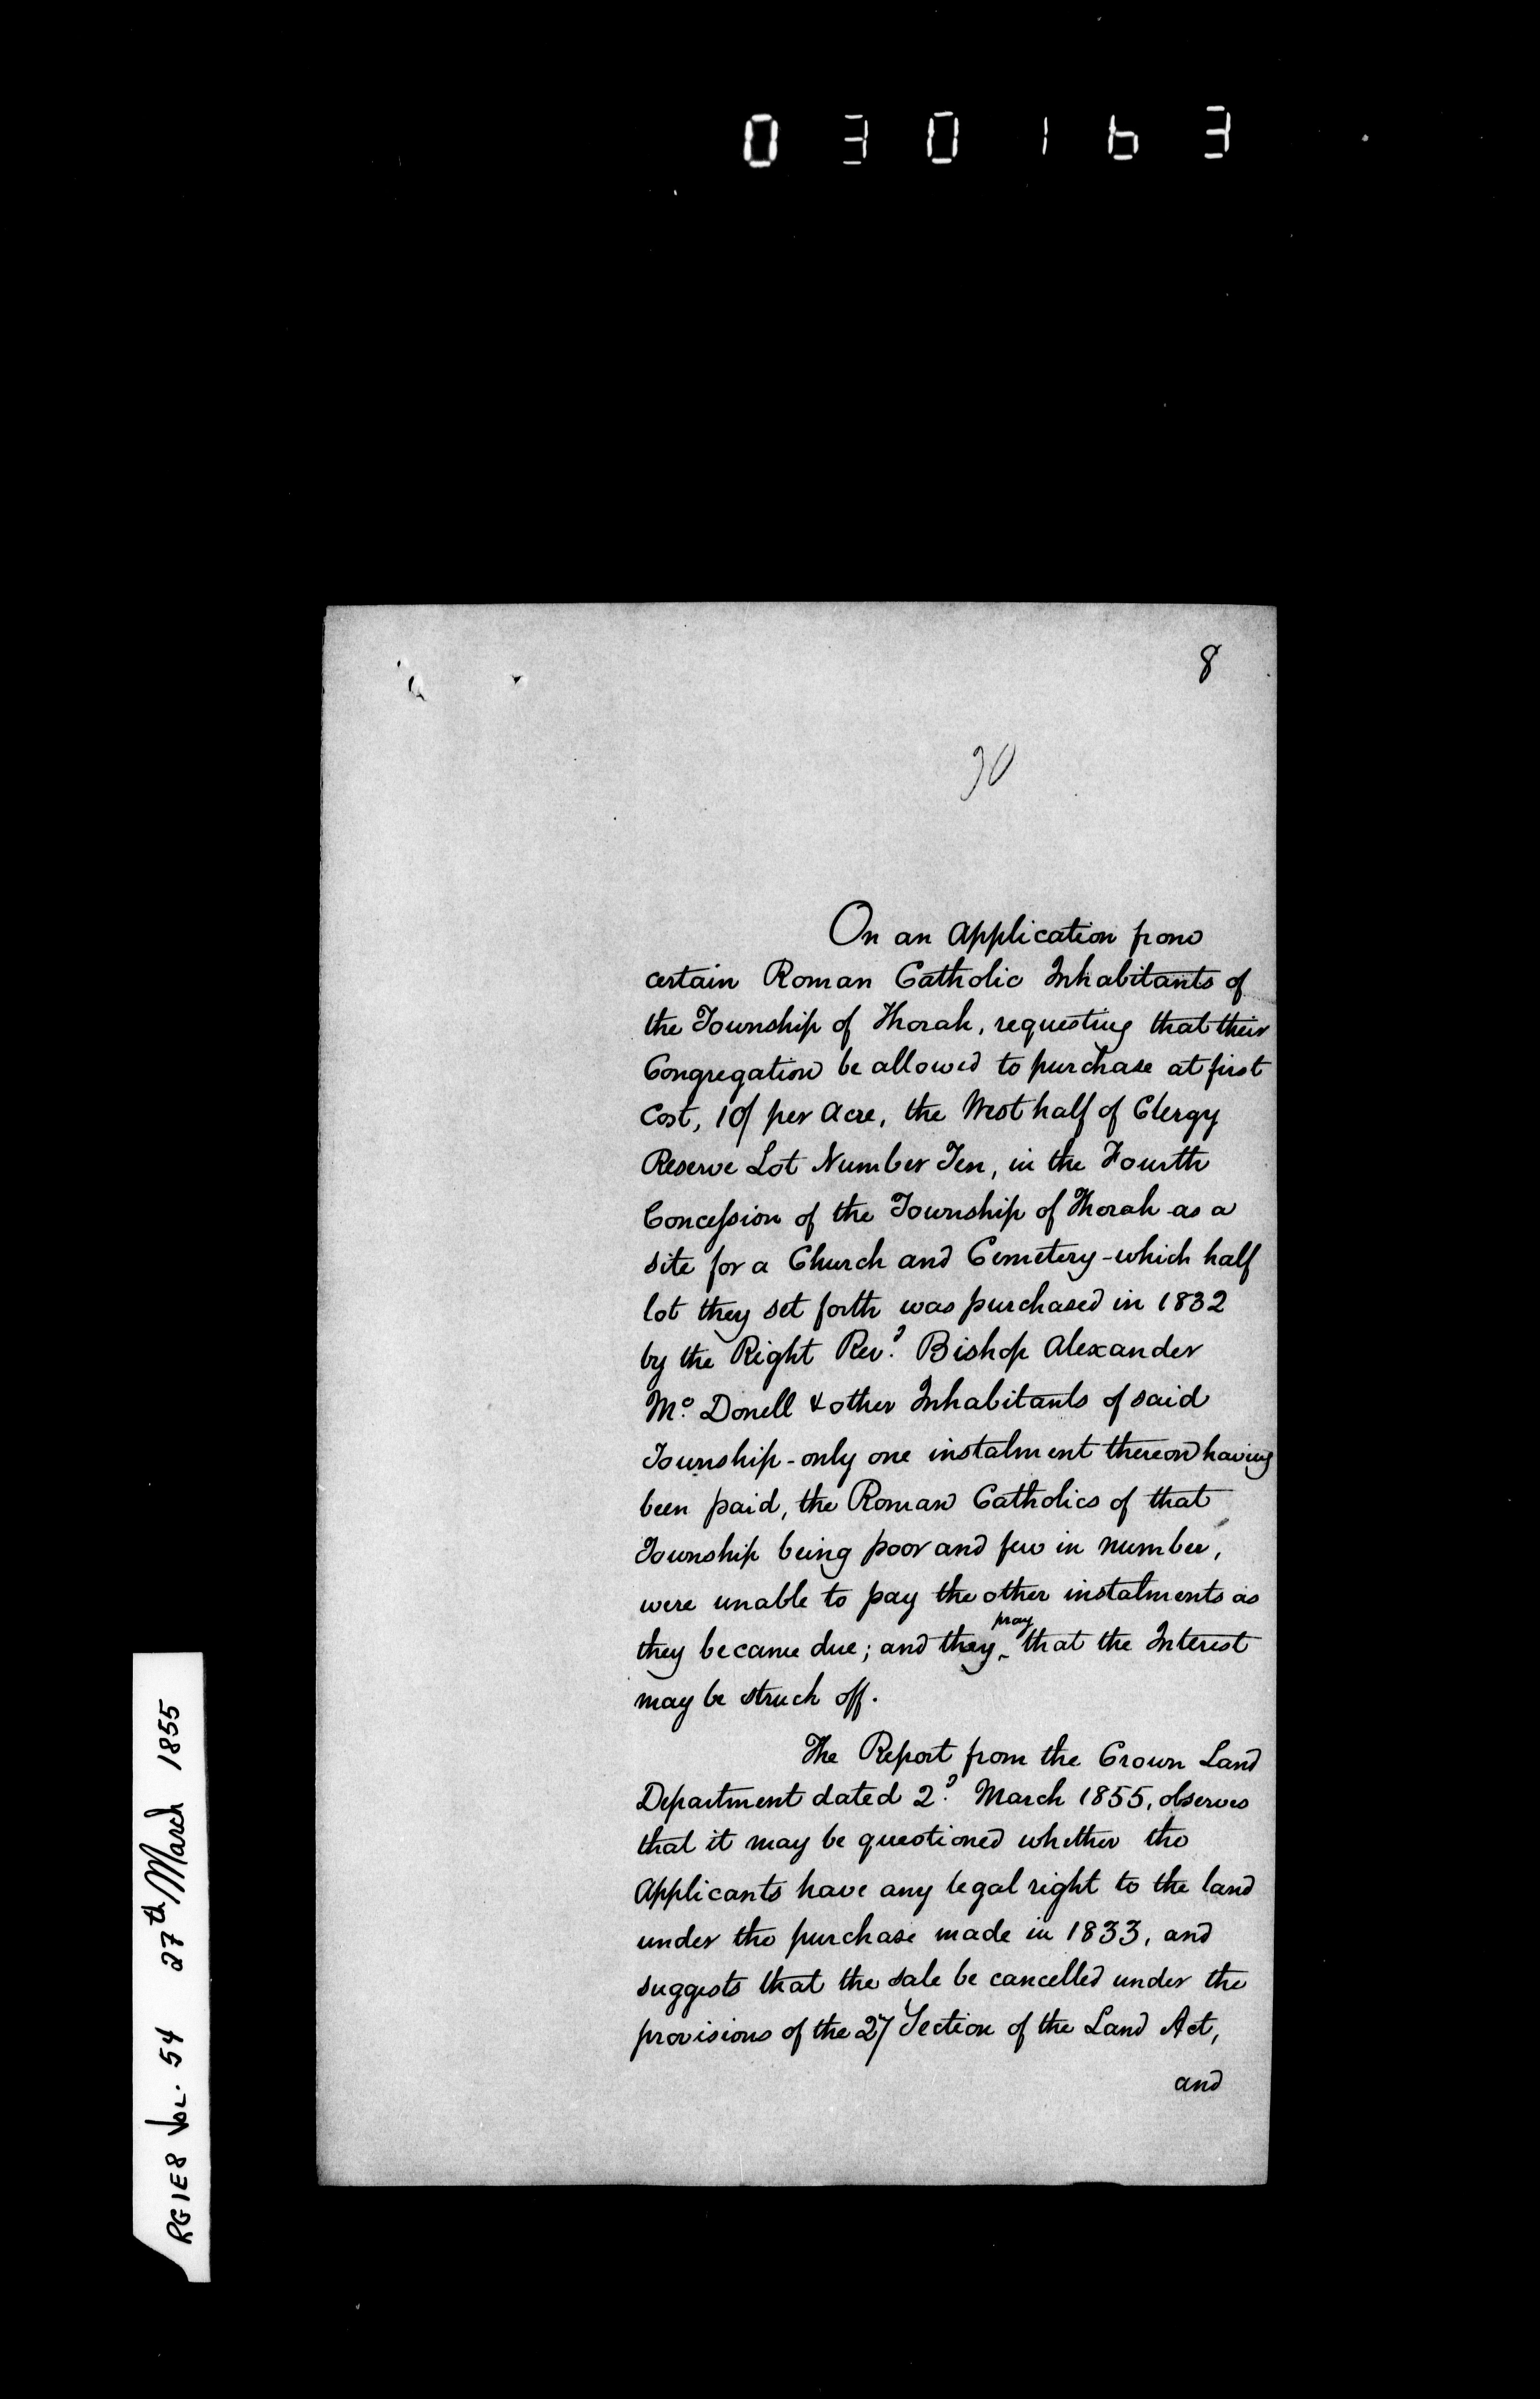 030163
8
30
On an Application from
certain Roman Catholic Inhabitants of
the Township of Thorah, requesting that their
Congregation be allowed to purchase at first
Cost, 10/ per Acre, the West half of Clergy
Reserve Lot Number Ten, in the Fourth
Concession of the Township of Thorah as a
site for a Church and Cemetery - which half
lot they set forth was purchased in 1832
by the Right Revd. Bishop Alexander
Mc. Donell & other Inhabitants of said
Township - only one instalment thereon having
been paid, the Roman Catholics of that
Township being poor and few in number,
were unable to pay the other instalments as
they became due; and they pray that the Interest
may be struck off.
The Report from the Crown Land
Department dated 2d. March 1855, observes
that it may be questioned whether the
Applicants have any legal right to the land
under the purchase made in 1833, and
suggests that the sale be cancelled under the
provisions of the 27 Section of the Land Act,
and
RG1E8 Vol. 54 27th March 1855